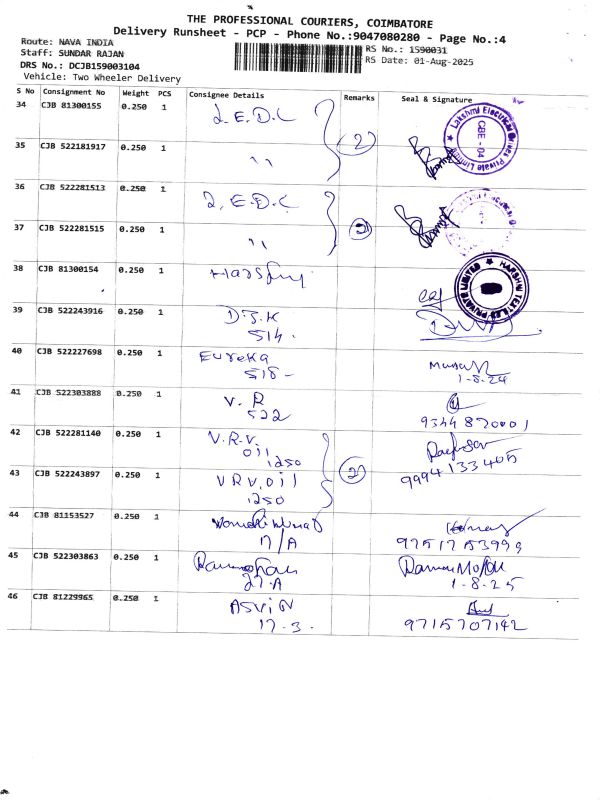 THE PROFESSIONAL COURIERS, COIMBATORE
Delivery Runsheet - PCP - Phone No.:9047080280 - Page No.:4
Route: NAVA INDIA
RS No.: 1590031
Staff: SUNDAR RAJAN
RS Date: 01-Aug-2025
DRS No.: DCJB159003104
Vehicle: Two Wheeler Delivery
S No Consignment No Weight PCS Consignee Details Remarks Seal & Signature
34 CJB 81300155 0.250 1 L.E.D.C
Lakshmi Electrical Drives Private Limited
CBE - 04
2
35 CJB 522181917 0.250 1 ,,
36 CJB 522281513 0.250 1 L.E.D.C
2
37 CJB 522281515 0.250 1 ,,
38 CJB 81300154 0.250 1
HARSHNI TEXTILES PRIVATE LIMITED
39 CJB 522243916 0.250 1 D.J.K
514.
40 CJB 522227698 0.250 1 Eureka
518 -
1-8-24
41 CJB 522303888 0.250 1 V. R
522
9344870001
42 CJB 522281140 0.250 1 V.R.V.
oil
1250
2
9994133405
43 CJB 522243897 0.250 1 VRV.oil
1250
44 CJB 81153527 0.250 1
17/A
9751753999
45 CJB 522303863 0.250 1
27.A
1-8-25
46 CJB 81229965 0.250 1 ASVIN
17-3.
9715707142